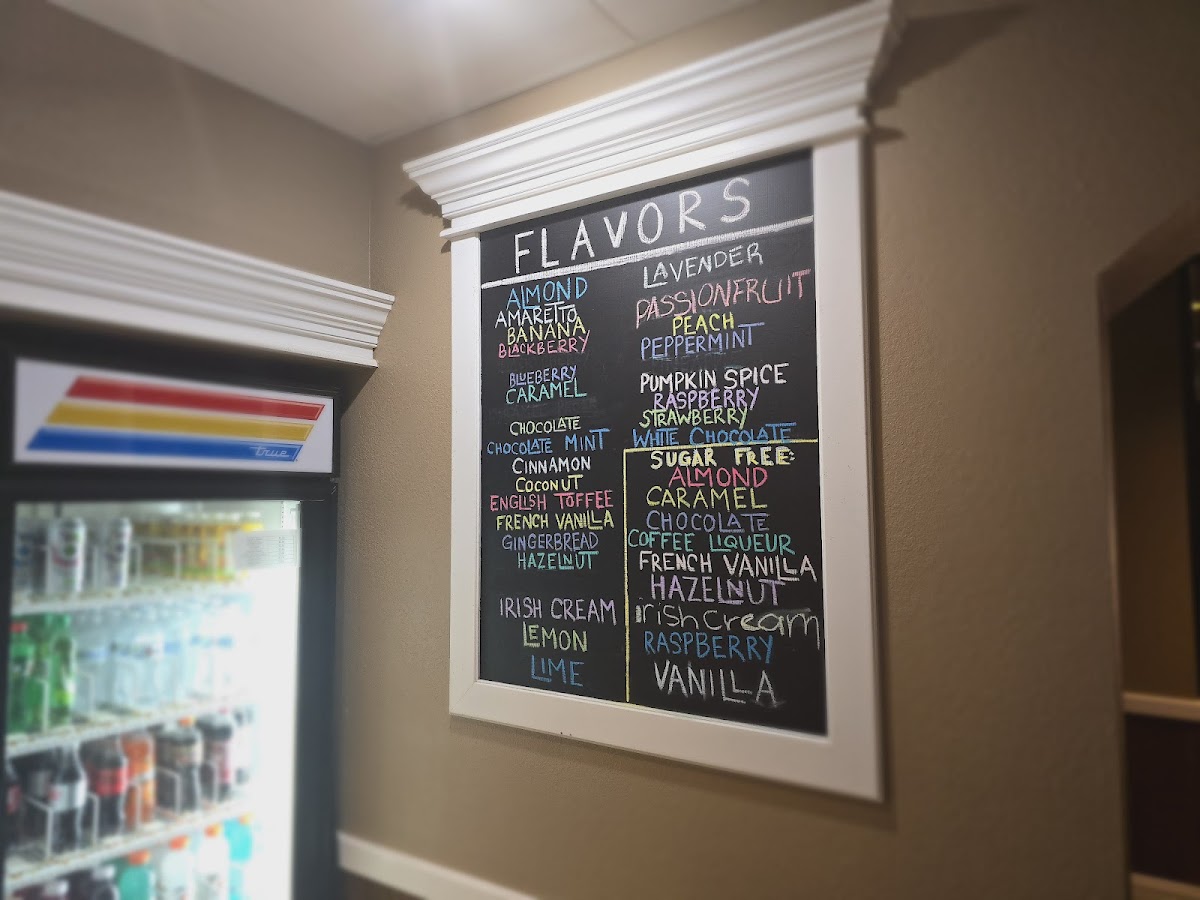 FLAVORS
ALMOND
AMARETTO
BANANA
BLACKBERRY
BLUEBERRY
CARAMEL
CHOCOLATE
CHOCOLATE MINT
CINNAMON
COCONUT
ENGLISH TOFFEE
FRENCH VANILLA
GINGERBREAD
HAZELNUT
IRISH CREAM
LEMON
LIME
LAVENDER
PASSIONFRUIT
PEACH
PEPPERMINT
PUMPKIN SPICE
RASPBERRY
STRAWBERRY
WHITE CHOCOLATE
SUGAR FREE:
ALMOND
CARAMEL
CHOCOLATE
COFFEE LIQUEUR
FRENCH VANILLA
HAZELNUT
irish cream
RASPBERRY
VANILLA
true